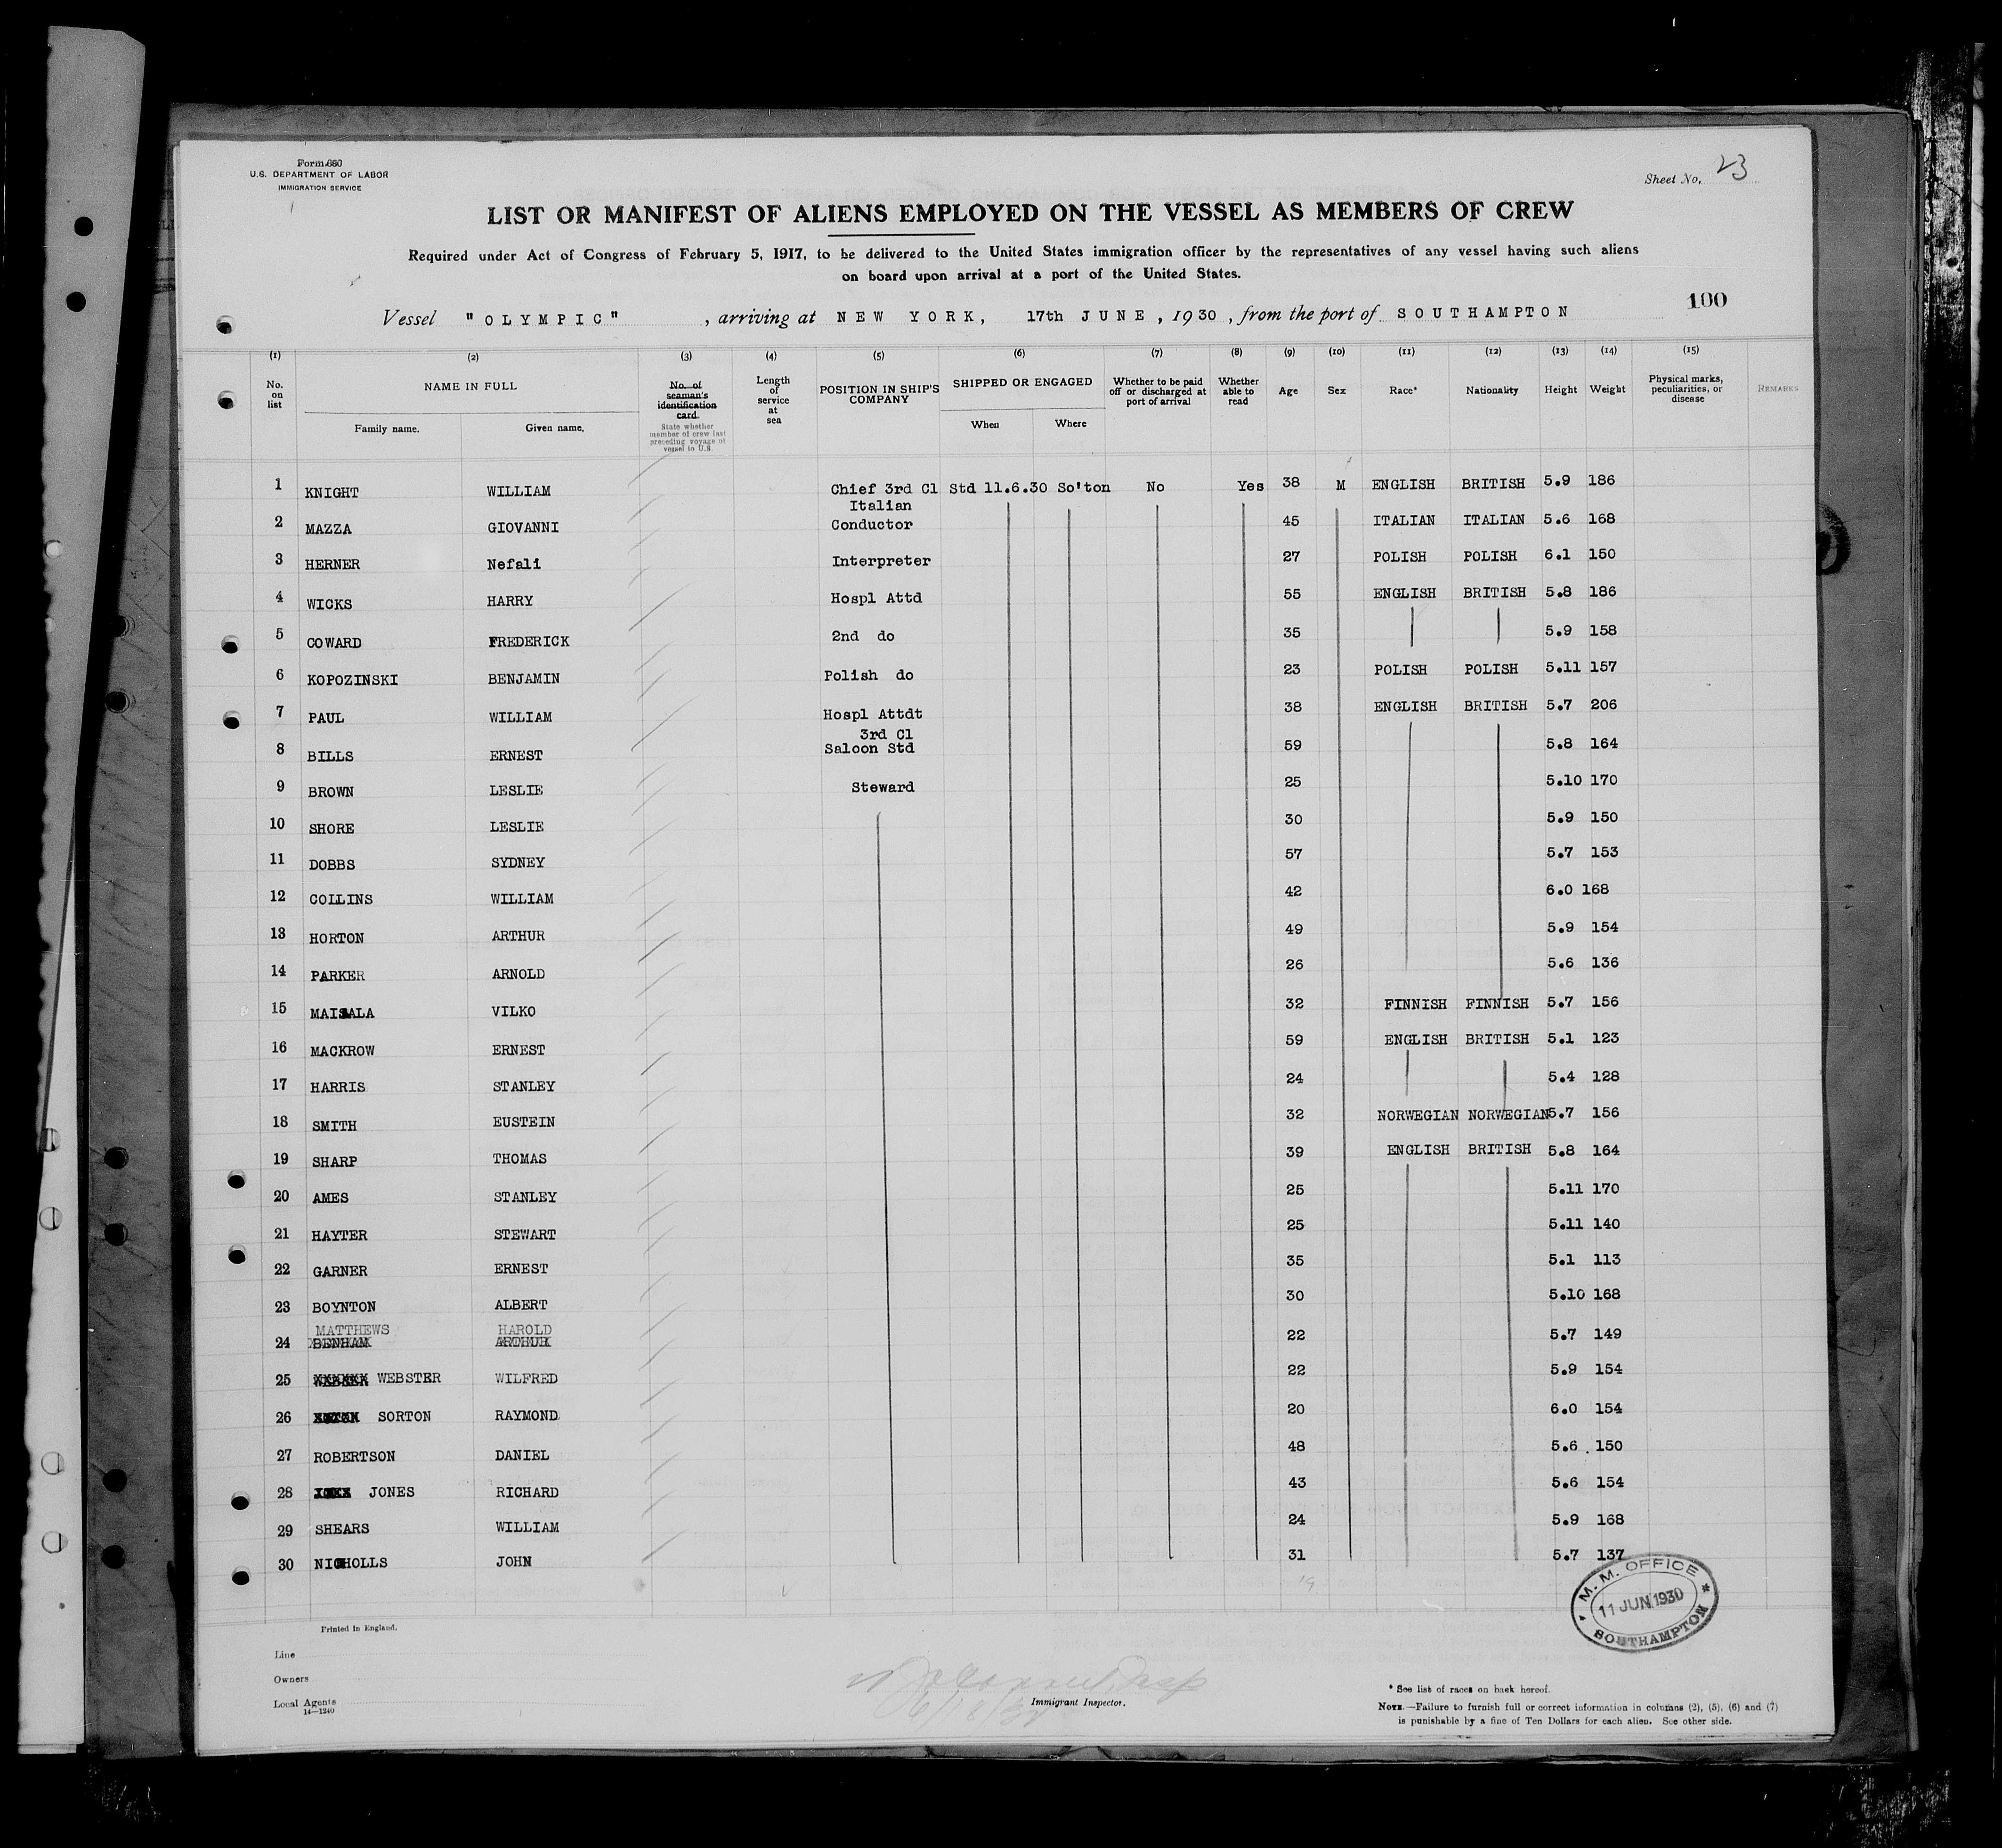 Form 680
U.S. DEPARTMENT OF LABOR
IMMIGRATION SERVICE
Sheet No. 23
LIST OR MANIFEST OF ALIENS EMPLOYED ON THE VESSEL AS MEMBERS OF CREW
Required under Act of Congress of February 5, 1917, to be delivered to the United States immigration officer by the representatives of any vessel having such aliens
on board upon arrival at a port of the United States.
100
Vessel "OLYMPIC", arriving at NEW YORK, 17th JUNE, 1930, from the port of SOUTHAMPTON
(1) (2) (3) (4) (5) (6) (7) (8) (9) (10) (11) (12) (13) (14) (15)
No. on list
NAME IN FULL
Family name. Given name.
No. of seaman's identification card.
State whether member of crew last preceding voyage of vessel to U.S.
Length of service at sea
POSITION IN SHIP'S COMPANY
SHIPPED OR ENGAGED
When Where
Whether to be paid off or discharged at port of arrival
Whether able to read
Age
Sex
Race*
Nationality
Height
Weight
Physical marks, peculiarities, or disease
REMARKS
1 KNIGHT WILLIAM Chief 3rd Cl Std 11.6.30 So'ton No Yes 38 M ENGLISH BRITISH 5.9 186
2 MAZZA GIOVANNI Italian Conductor 45 ITALIAN ITALIAN 5.6 168
3 HERNER Nefali Interpreter 27 POLISH POLISH 6.1 150
4 WICKS HARRY Hospl Attd 55 ENGLISH BRITISH 5.8 186
5 COWARD FREDERICK 2nd do 35 5.9 158
6 KOPOZINSKI BENJAMIN Polish do 23 POLISH POLISH 5.11 157
7 PAUL WILLIAM Hospl Attdt 38 ENGLISH BRITISH 5.7 206
8 BILLS ERNEST 3rd Cl Saloon Std 59 5.8 164
9 BROWN LESLIE Steward 25 5.10 170
10 SHORE LESLIE 30 5.9 150
11 DOBBS SYDNEY 57 5.7 153
12 COLLINS WILLIAM 42 6.0 168
13 HORTON ARTHUR 49 5.9 154
14 PARKER ARNOLD 26 5.6 136
15 MAISALA VILKO 32 FINNISH FINNISH 5.7 156
16 MACKROW ERNEST 59 ENGLISH BRITISH 5.1 123
17 HARRIS STANLEY 24 5.4 128
18 SMITH EUSTEIN 32 NORWEGIAN NORWEGIAN 5.7 156
19 SHARP THOMAS 39 ENGLISH BRITISH 5.8 164
20 AMES STANLEY 25 5.11 170
21 HAYTER STEWART 25 5.11 140
22 GARNER ERNEST 35 5.1 113
23 BOYNTON ALBERT 30 5.10 168
MATTHEWS HAROLD
24 BENHAM ARTHUR 22 5.7 149
25 WEBSTER WILFRED 22 5.9 154
26 SORTON RAYMOND 20 6.0 154
27 ROBERTSON DANIEL 48 5.6 150
28 JONES RICHARD 43 5.6 154
29 SHEARS WILLIAM 24 5.9 168
30 NICHOLLS JOHN 31 5.7 137
M. M. OFFICE
11 JUN 1930
SOUTHAMPTON
Printed in England.
Line
Owners
Local Agents
14—1240
Immigrant Inspector.
* See list of races on back hereof.
NOTE.—Failure to furnish full or correct information in columns (2), (5), (6) and (7)
is punishable by a fine of Ten Dollars for each alien. See other side.